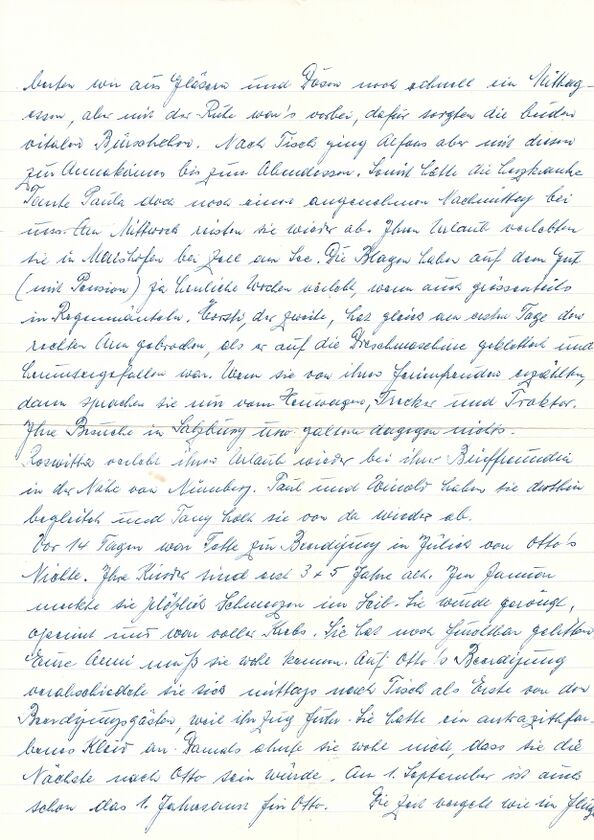 wir aus Gläsern und Dosen noch schnell ein Mittag-
essen, aber mit der Ruhe war's vorbei, dafür sorgten die beiden
vitalen Bürschchen. Nach Tisch ging Alfons aber mit diesen
zur bis zum Abendessen. Somit hatte die herzkranke
Tante Paula doch noch einen angenehmen Nachmittag bei
uns. Am Mittwoch reisten sie wieder ab. Ihren Urlaub verlebten
sie in Maishofen bei Zell am See. Die Blagen haben auf dem Gut
(mit Pension) ja herrliche Wochen verlebt, wenn auch grösstenteils
in Regenmänteln. Horst, der zweite, hat gleich am ersten Tage den
rechten Arm gebrochen, als er auf die Dreschmaschine geklettert und
heruntergefallen war. Wenn sie von ihren Ferienfreuden erzählten,
dann sprachen sie nur vom Heuwagen, Trecker und Traktor.
Ihre Besuche in Salzburg usw. galten dagegen nichts.
Roswitha verlebt ihren Urlaub wieder bei ihrer Brieffreundin
in der Nähe von Nürnberg. Paul und haben sie dorthin
begleitet und holt sie von da wieder ab.
Vor 14 Tagen war zur Beerdigung in Jülich von Otto's
Nichte. Ihre Kinder sind erst 3 + 5 Jahre alt. Im Januar
merkte sie plötzlich Schmerzen im Leib. Sie wurde geröngt,
operiert und war voller Krebs. Sie hat noch furchtbar gelitten.
Eure Anni muß sie wohl kennen. Auf Otto's Beerdigung
verabschiedete sie sich mittags nach Tisch als Erste von den
Beerdigungsgästen, weil ihr Zug fuhr. Sie hatte ein antrazithfar-
benes Kleid an. Damals ahnte sie wohl nicht, dass sie die
Nächste nach Otto sein würde. Am 1. September ist auch
schon das 1. Jahresamt für Otto. Die Zeit vergeht wie im Fluge